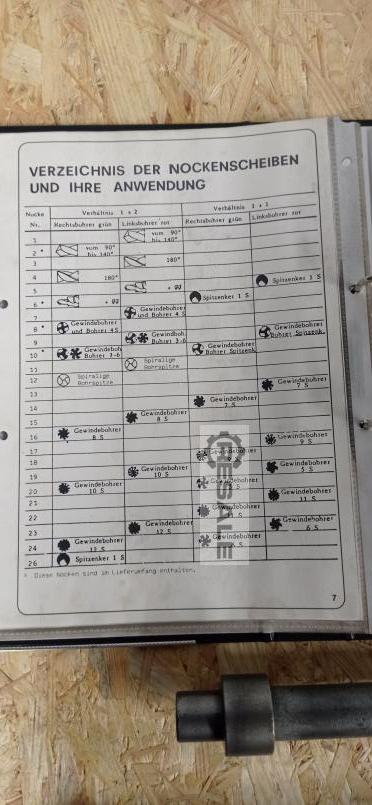 VERZEICHNIS DER NOCKENSCHEIBEN
UND IHRE ANWENDUNG
Nocke Verhältnis 1 : 2 Verhältnis 1 : 1
Nr. Rechtsbohrer grün Linksbohrer rot Rechtsbohrer grün Linksbohrer rot
1 vom 90°
bis 140°
2 * vom 90°
bis 140°
3 180°
4 180°
5 Spitzenker 1 S
6 * Spitzenker 1 S
7 Gewindebohrer
und Bohrer 4 S
8 * Gewindebohrer
und Bohrer 4 S
9 Gewindboh. Gewindebohrer
Bohrer 3-6 Bohrer Spitzenk.
10 * Gewindeboh. Gewindebohrer
Bohrer 3-6 Bohrer Spitzenk.
11 Spiralige
Bohrspitze
12 Spiralige
Bohrspitze
13 Gewindebohrer
7 S
14 Gewindebohrer
7 S
15 Gewindebohrer
8 S
16 Gewindebohrer
8 S
17 Gewindebohrer
9 S
18 Gewindebohrer
19 Gewindebohrer Gewindebohrer
10 S 5 S
20 Gewindebohrer Gewindebohrer
10 S
21 Gewindebohrer
11 S
22 Gewindebohrer
23 Gewindebohrer Gewindebohrer
12 S 6 S
24 Gewindebohrer Gewindebohrer
12 S
26 Spitzenker 1 S
* Diese Nocken sind im Lieferumfang enthalten.
7
RESALE